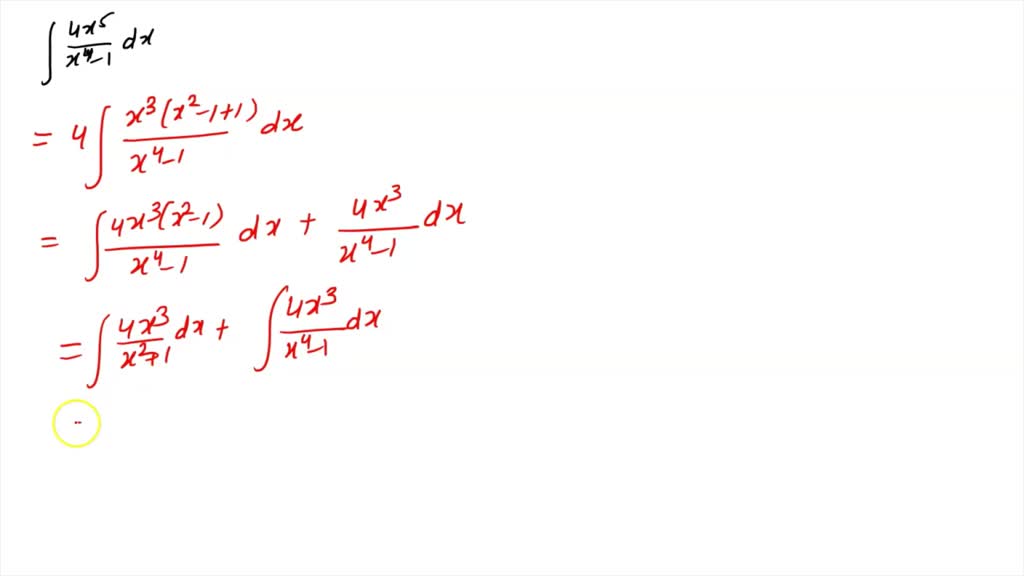 ∫ 4x⁵/(x⁴-1) dx
= 4 ∫ x³(x²-1+1)/(x⁴-1) dx
= ∫ 4x³(x²-1)/(x⁴-1) dx + 4x³/(x⁴-1) dx
= ∫ 4x³/(x²+1) dx + ∫ 4x³/(x⁴-1) dx